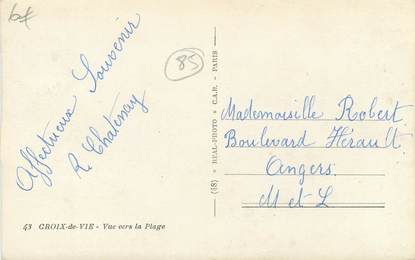 85
Affectueux Souvenir
R. Chatenay
43 CROIX-de-VIE - Vue vers la Plage
(48) REAL-PHOTO C.A.P. - PARIS
Mademoiselle Robert
Boulevard Hérault
Angers
M et L